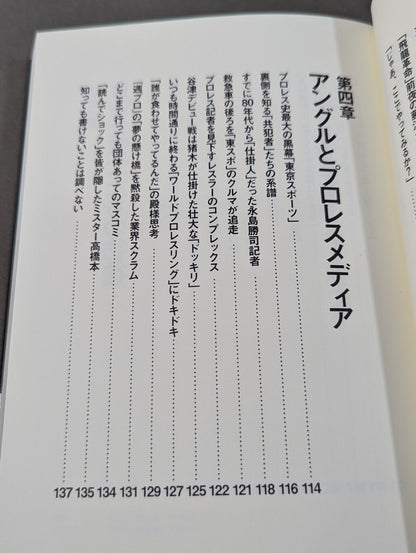 「飛龍革命」前夜の
（「じゃあ、ここでやってみるか？」
第四章
アングルとプロレスメディア
プロレス史最大の黒幕「東京スポーツ」 114
裏側を知る「共犯者」たちの系譜 116
すでに80年代から「仕掛人」だった永島勝司記者 118
救急車の後ろを「東スポ」のクルマが追走 121
プロレス記者を見下すレスラーのコンプレックス 122
谷津デビュー戦は猪木が仕掛けた壮大な「ドッキリ」 125
いつも時間通りに終わる「ワールドプロレスリング」にドキドキ 127
「誰が食わせてやってるんだ」の殿様思考 129
「週プロ」の「夢の懸け橋」を黙殺した業界スクラム 131
どこまで行っても団体あってのマスコミ 134
「読んでショック」を皆が隠したミスター高橋本 135
知っても書けないことは調べない 137